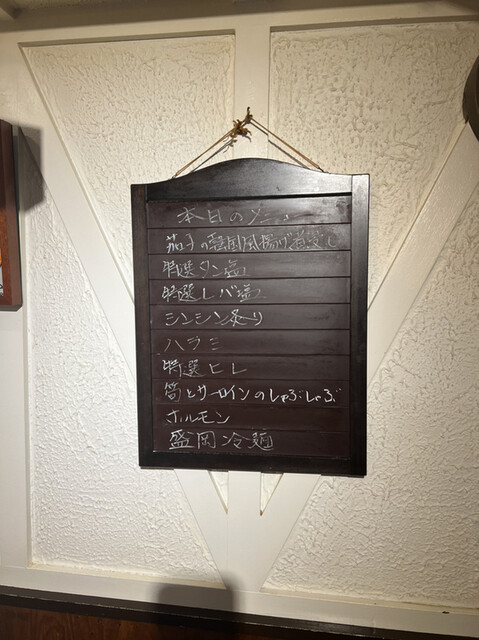 本日のメニュー
茄子の韓国風揚げ煮浸し
特選タン塩
特選レバ塩
シンシン炙り
ハラミ
特選ヒレ
筍とサーロインのしゃぶしゃぶ
ホルモン
盛岡冷麺